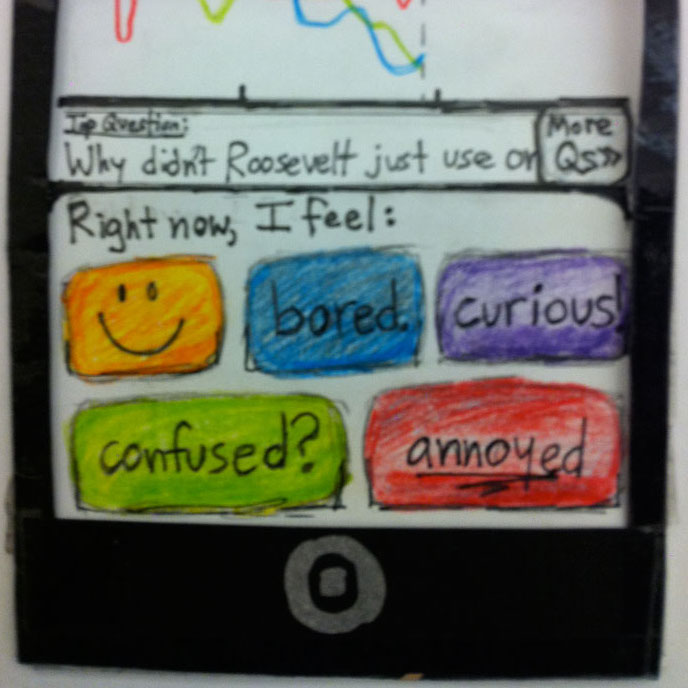 Top Question:
Why didn't Roosevelt just use or
More
Qs»
Right now, I feel:
bored.
curious!
confused?
annoyed